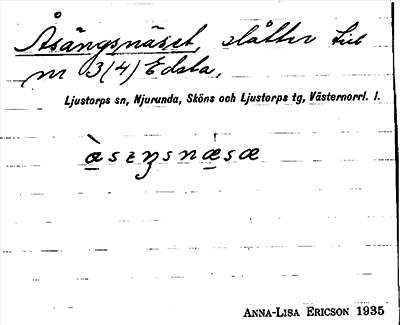 Åsängsnäset, slåtter till
nr 3(4) Edsta,
Ljustorps sn, Njurunda, Sköns och Ljustorps tg, Västernorrl. l.
ANNA-LISA ERICSON 1935